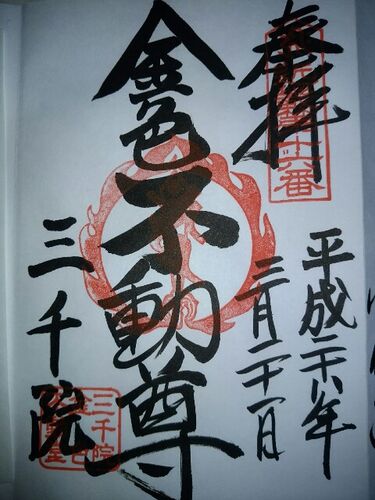 奉拝
十六番
平成二十八年
三月二十一日
金色不動尊
三千院
三千院